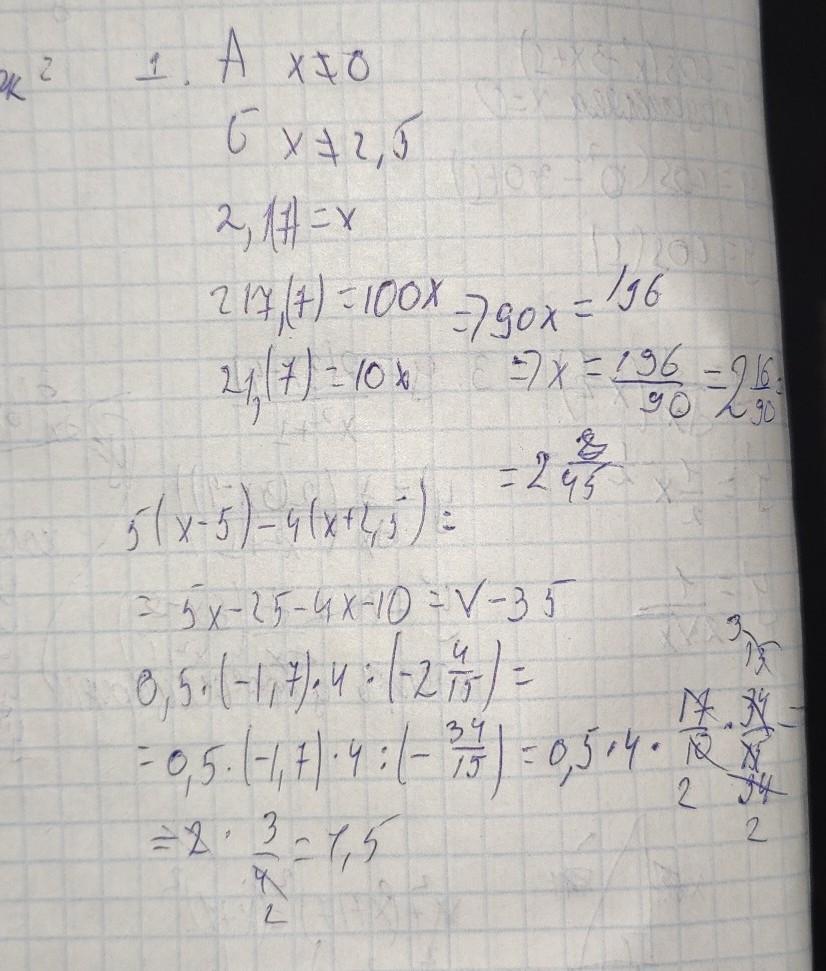 ж² 1. А x≠0
Б x≠2,5
2,1(7)=x
217,(7)=100x ⇒90x=196
21,(7)=10x ⇒x=196/90=2 16/90=
=2 8/45
5(x-5)-4(x+2,5)=
=5x-25-4x-10=x-35
0,5·(-1,7)·4:(-2 4/15)=
=0,5·(-1,7)·4:(-34/15)=0,5·4·17/10·15/34=
=2·3/4=1,5